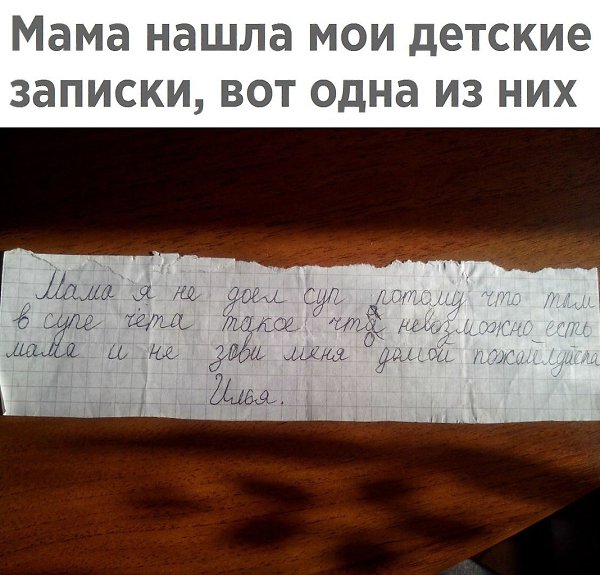 Мама нашла мои детские
записки, вот одна из них
Мама я не доел суп потому что там
в супе чета такое что невозможно есть
мама и не зови меня домой пожайлуйста
Илья.